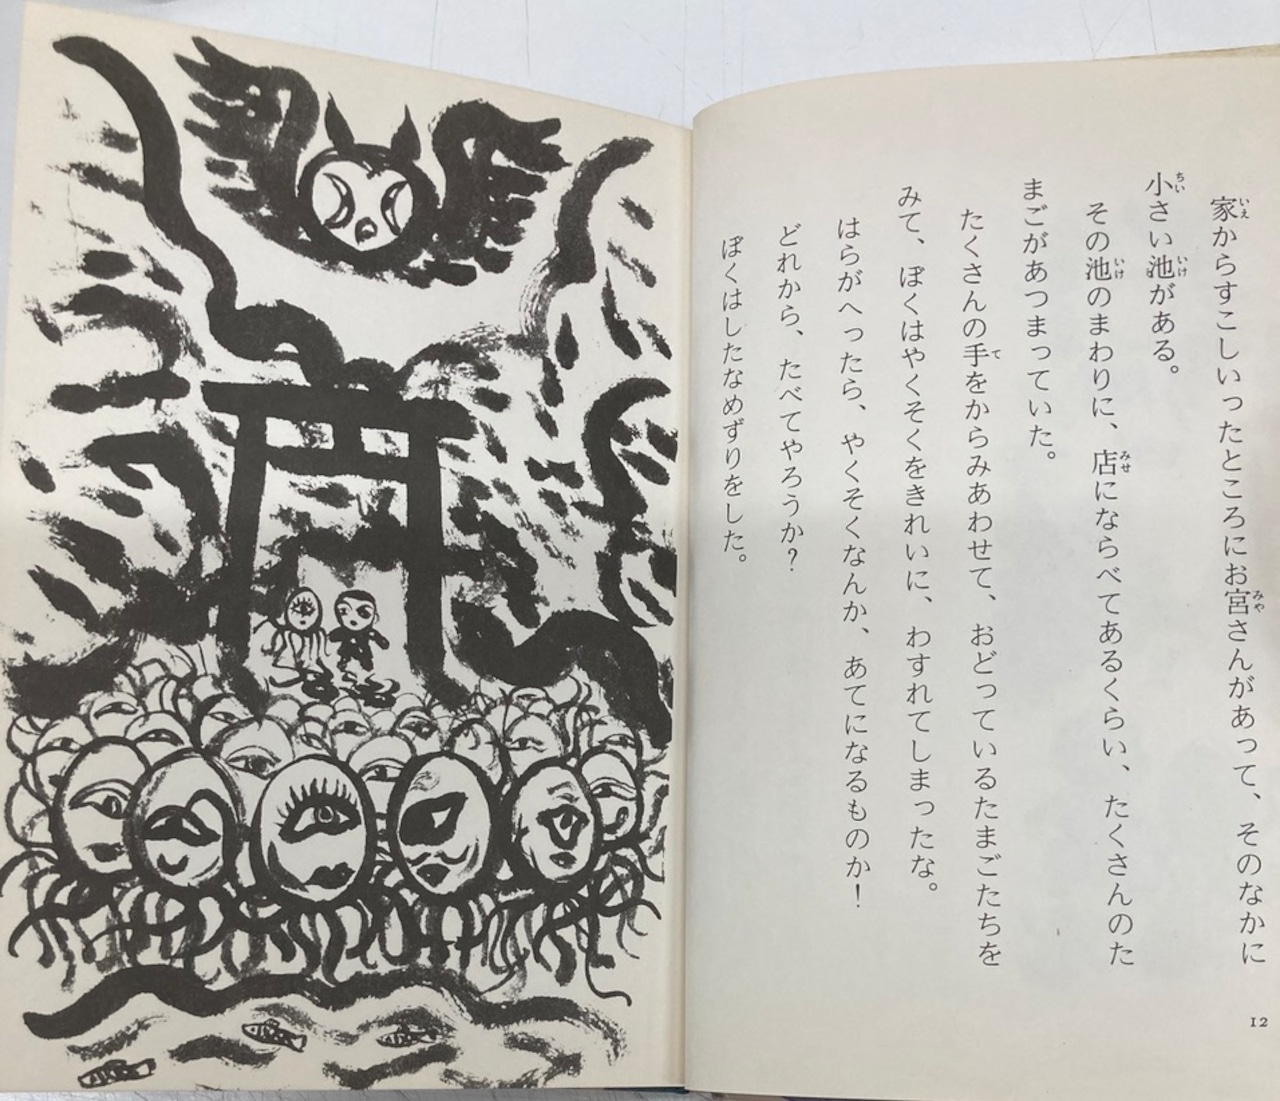 家からすこしいったところにお宮さんがあって、そのなかに
小さい池がある。
その池のまわりに、店にならべてあるくらい、たくさんのた
まごがあつまっていた。
たくさんの手をからみあわせて、おどっているたまごたちを
みて、ぼくはやくそくをきれいに、わすれてしまったな。
はらがへったら、やくそくなんか、あてになるものか！
どれから、たべてやろうか？
ぼくはしたなめずりをした。
12